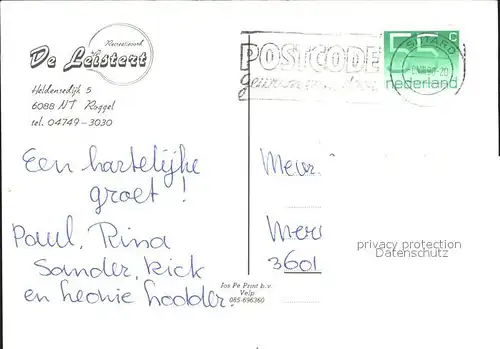 Recreatieoord
De Leistert
Heldensedijk 5
6088 NT Roggel
tel. 04749-3030
Een hartelijke
groet!
Paul, Rina
Sander, Rick
en Leonie Lodder.
Jos Pe Print b.v.
Velp
085-696360
POSTCODE
SITTARD
55 c
nederland
Mevr.
Merc
3601
privacy protection
Datenschutz